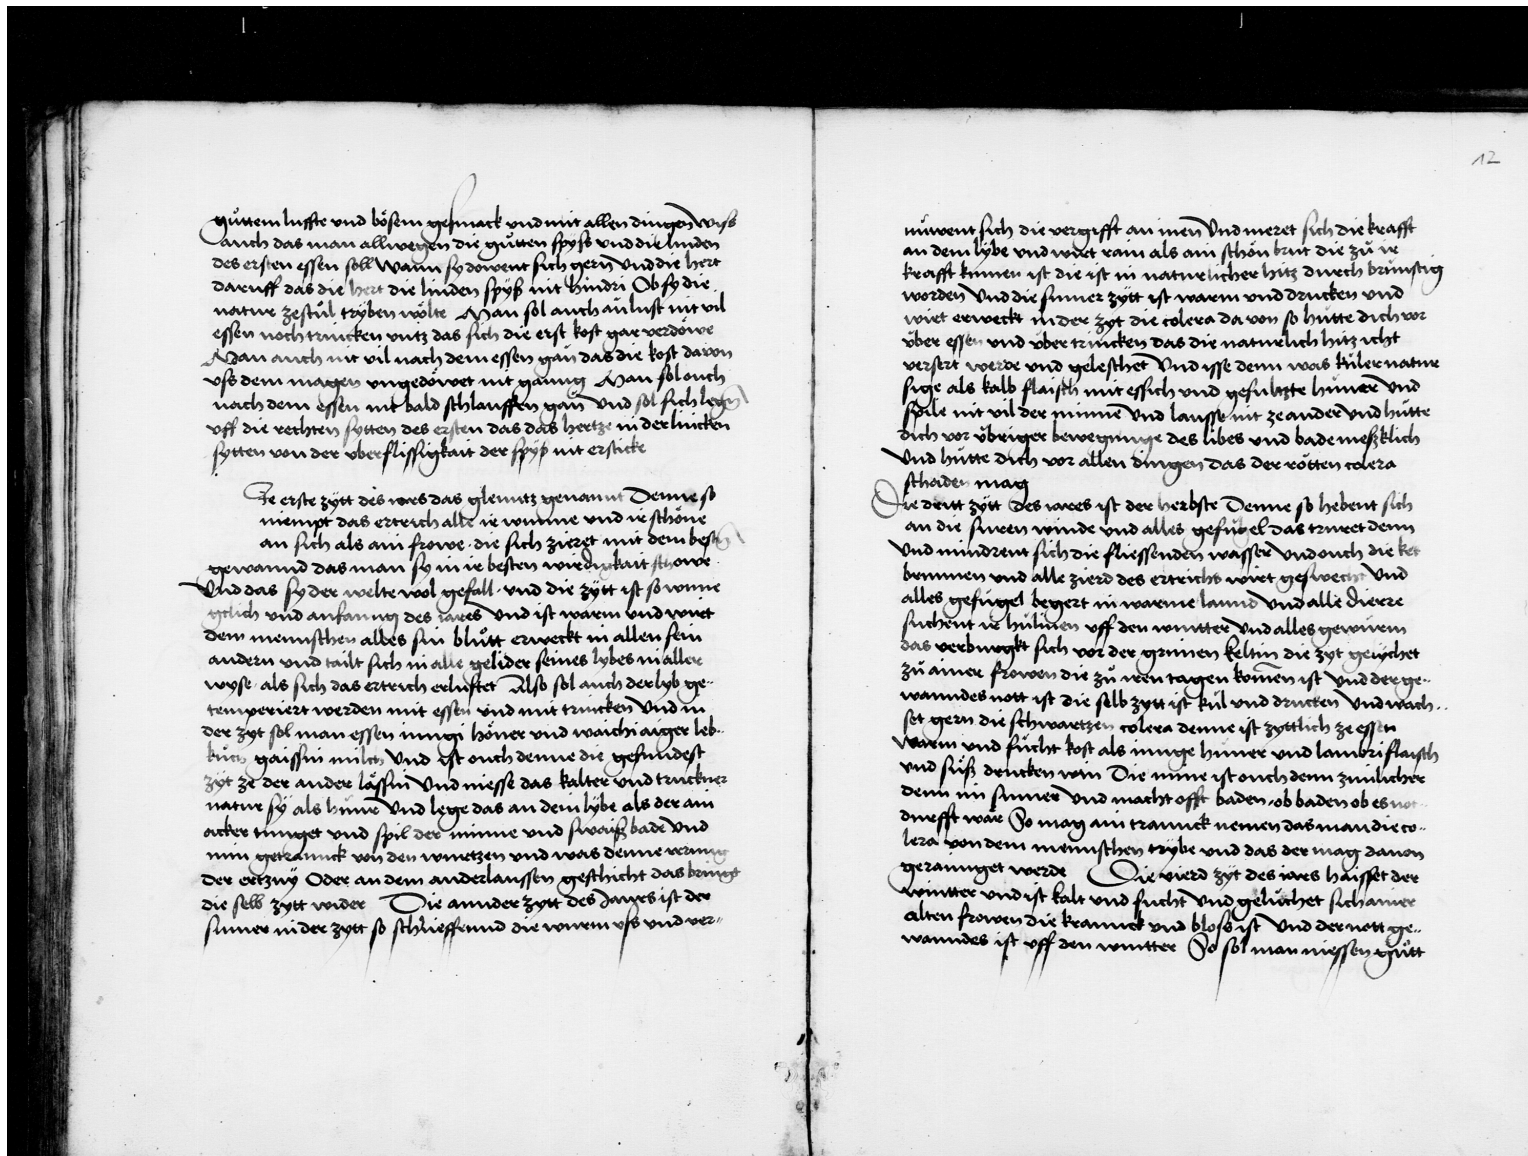 guͦttem luffte vnd boͤsem gesmack vnd mit allen dingen Wiss
auch das man allwegen die guͦtten spyss vnd die linden
des ersten essen soll Wann sy doͤwent sich gern Vnd die hert
daruff das die hert die linden spyß nit hindri Ob sy die
natur ze stuͦl tryben woͤlte Man sol auch aͮn lust nit vil
essen noch trincken vntz das sich die erst kost gar verdoͤwe
Man auch nit vil nach dem essen gaͮn das die kost davon
vss dem magen vngedoͤwet nit ganng Man sol ouch
nach dem essen nit bald schlauffen gaͮn Vnd sol sich legn
vff die rechten sytten des ersten das das hertze in der lincken
sytten von der vberflissigkait der spyß nit ersticke
Je erste zytt des iares das glenntz genannt Denne so
niempt das ertrich alle ir wunne vnd ir schoͤne
an sich als ain frowe die sich zieret mit dem bestn
gewannd das man sy in ir besten wirdigkait schowe
Vnd das sy der welte wol gefall vnd die zytt ist so wune
gclich vnd anfanng des iares Vnd ist warm vnd wirt
dem mennschen alles sin bluͦtt erweckt in allen sein
andern vnd tailt sich in alle gelider seines lybes in aller
wyse als sich das ertrich erluftet Also sol auch der lyb ge-
temperiert werden mit essen vnd mit trincken Vnd in
der zyt sol man essen iungi hoͤner vnd waichi aiger leb-
kuͦch gaissin milch Vnd ist ouch denne die gesundest
zyt ze der ander laͤssin Vnd niesse das kalter vnd truckner
natur sy als huner Vnd lege das an dein lybe als der ain
acker tunget vnd spil der minne vnd swaiß bade Vnd
nim getranck von den wurtzen vnd was denne vernug
der ertzny Oder an dem anderlaussen geschicht das bringt
die selb zytt wider Die annder zytt des Jaures ist der
sumer in der zytt so schlieffennd die wurm vss vnd ver-
12
nuͤwent sich die vergifft an inen Vnd meret sich die krafft
an dem lybe vnd wirt rain als ain schoͤn brut die zuͦ ir
krafft kumen ist die ist in naturlicher hitz durch brunstig
worden Vnd die sumer zytt ist warm vnd drucken vnd
wirt erweckt in der zyt die colera da von so huͤtte dich vor
uͤber essen vnd uͤber trincken das die naturlich hitz icht
versert werde vnd geleschet Vnd isse denn was kuͤler nature
sige als kalb flaisch mit essich vnd gesultzte huͤnrer Vnd
spile nit vil der minne Vnd lausse nit ze ander vnd huͤtte
dich vor uͤbriger bewegunge des libes vnd bade meßklich
Vnd huͤtte dich vor allen dingen das der rotten colera
schaden mag
Die dritt zytt des iares ist der herbste Denne so hebent sich
an die suren winde vnd alles gefugel das truret denn
Vnd mindrent sich die fliessenden wasser Vnd ouch die ket
brunnen vnd alle zierd des ertrichs wirt geswecht Vnd
alles gefugel begert in warme lannd Vnd alle dierre
suchent ir hulinen vff den wintter Vnd alles gewurm
das verburgkt sich vor der grimen keltin die zyt gelychet
zuͦ ainer frowen die zuͦ iren tagen komen ist Vnd der ge-
wanndes nott ist die selb zytt ist kuͤl vnd drucken Vnd wach-
set gern die schwartzen colera denne ist zyttlich ze essen
warm vnd fuͤcht kost als iunge huner vnd lambri flaisch
vnd suͤß drucken win Die mine ist ouch denn zimlicher
denn im sumer Vnd macht offt baden ob baden ob es not-
durfft war So mag ain tranck nemen das man die co-
lera von dem mennschen trybe vnd das der mag davon
gerainiget werde Die vierd zyt des iares haisset der
wintter vnd ist kalt vnd fucht Vnd geluͤchet sich ainer
alten frowen die kranck vnd bloss ist Vnd der nott ge-
wanndes ist vff den wintter So sol man niessen guͦtt